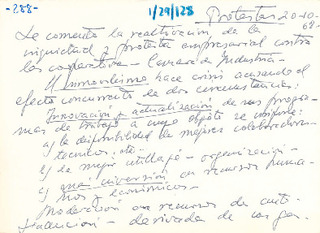 -288-
1/29/128
Protestas 20-10-
68-
Se comenta la reactivación de la
inquietud y protesta empresarial contra
las cooperativas - Camara de Industria -
El Inmovilismo hace crisis acusando el
efecto concurrente de dos circunstancias:
Innovación y actualización de sus progra-
mas de trabajo a cuyo objeto se
a) la disponibilidad de mejores colaboradores
técnicos, etc.
b) La mejor utillaje - organización -
c) una inversión en recursos huma-
nos y económicos -
Moderación en recursos de auto-
derivada de cargas.